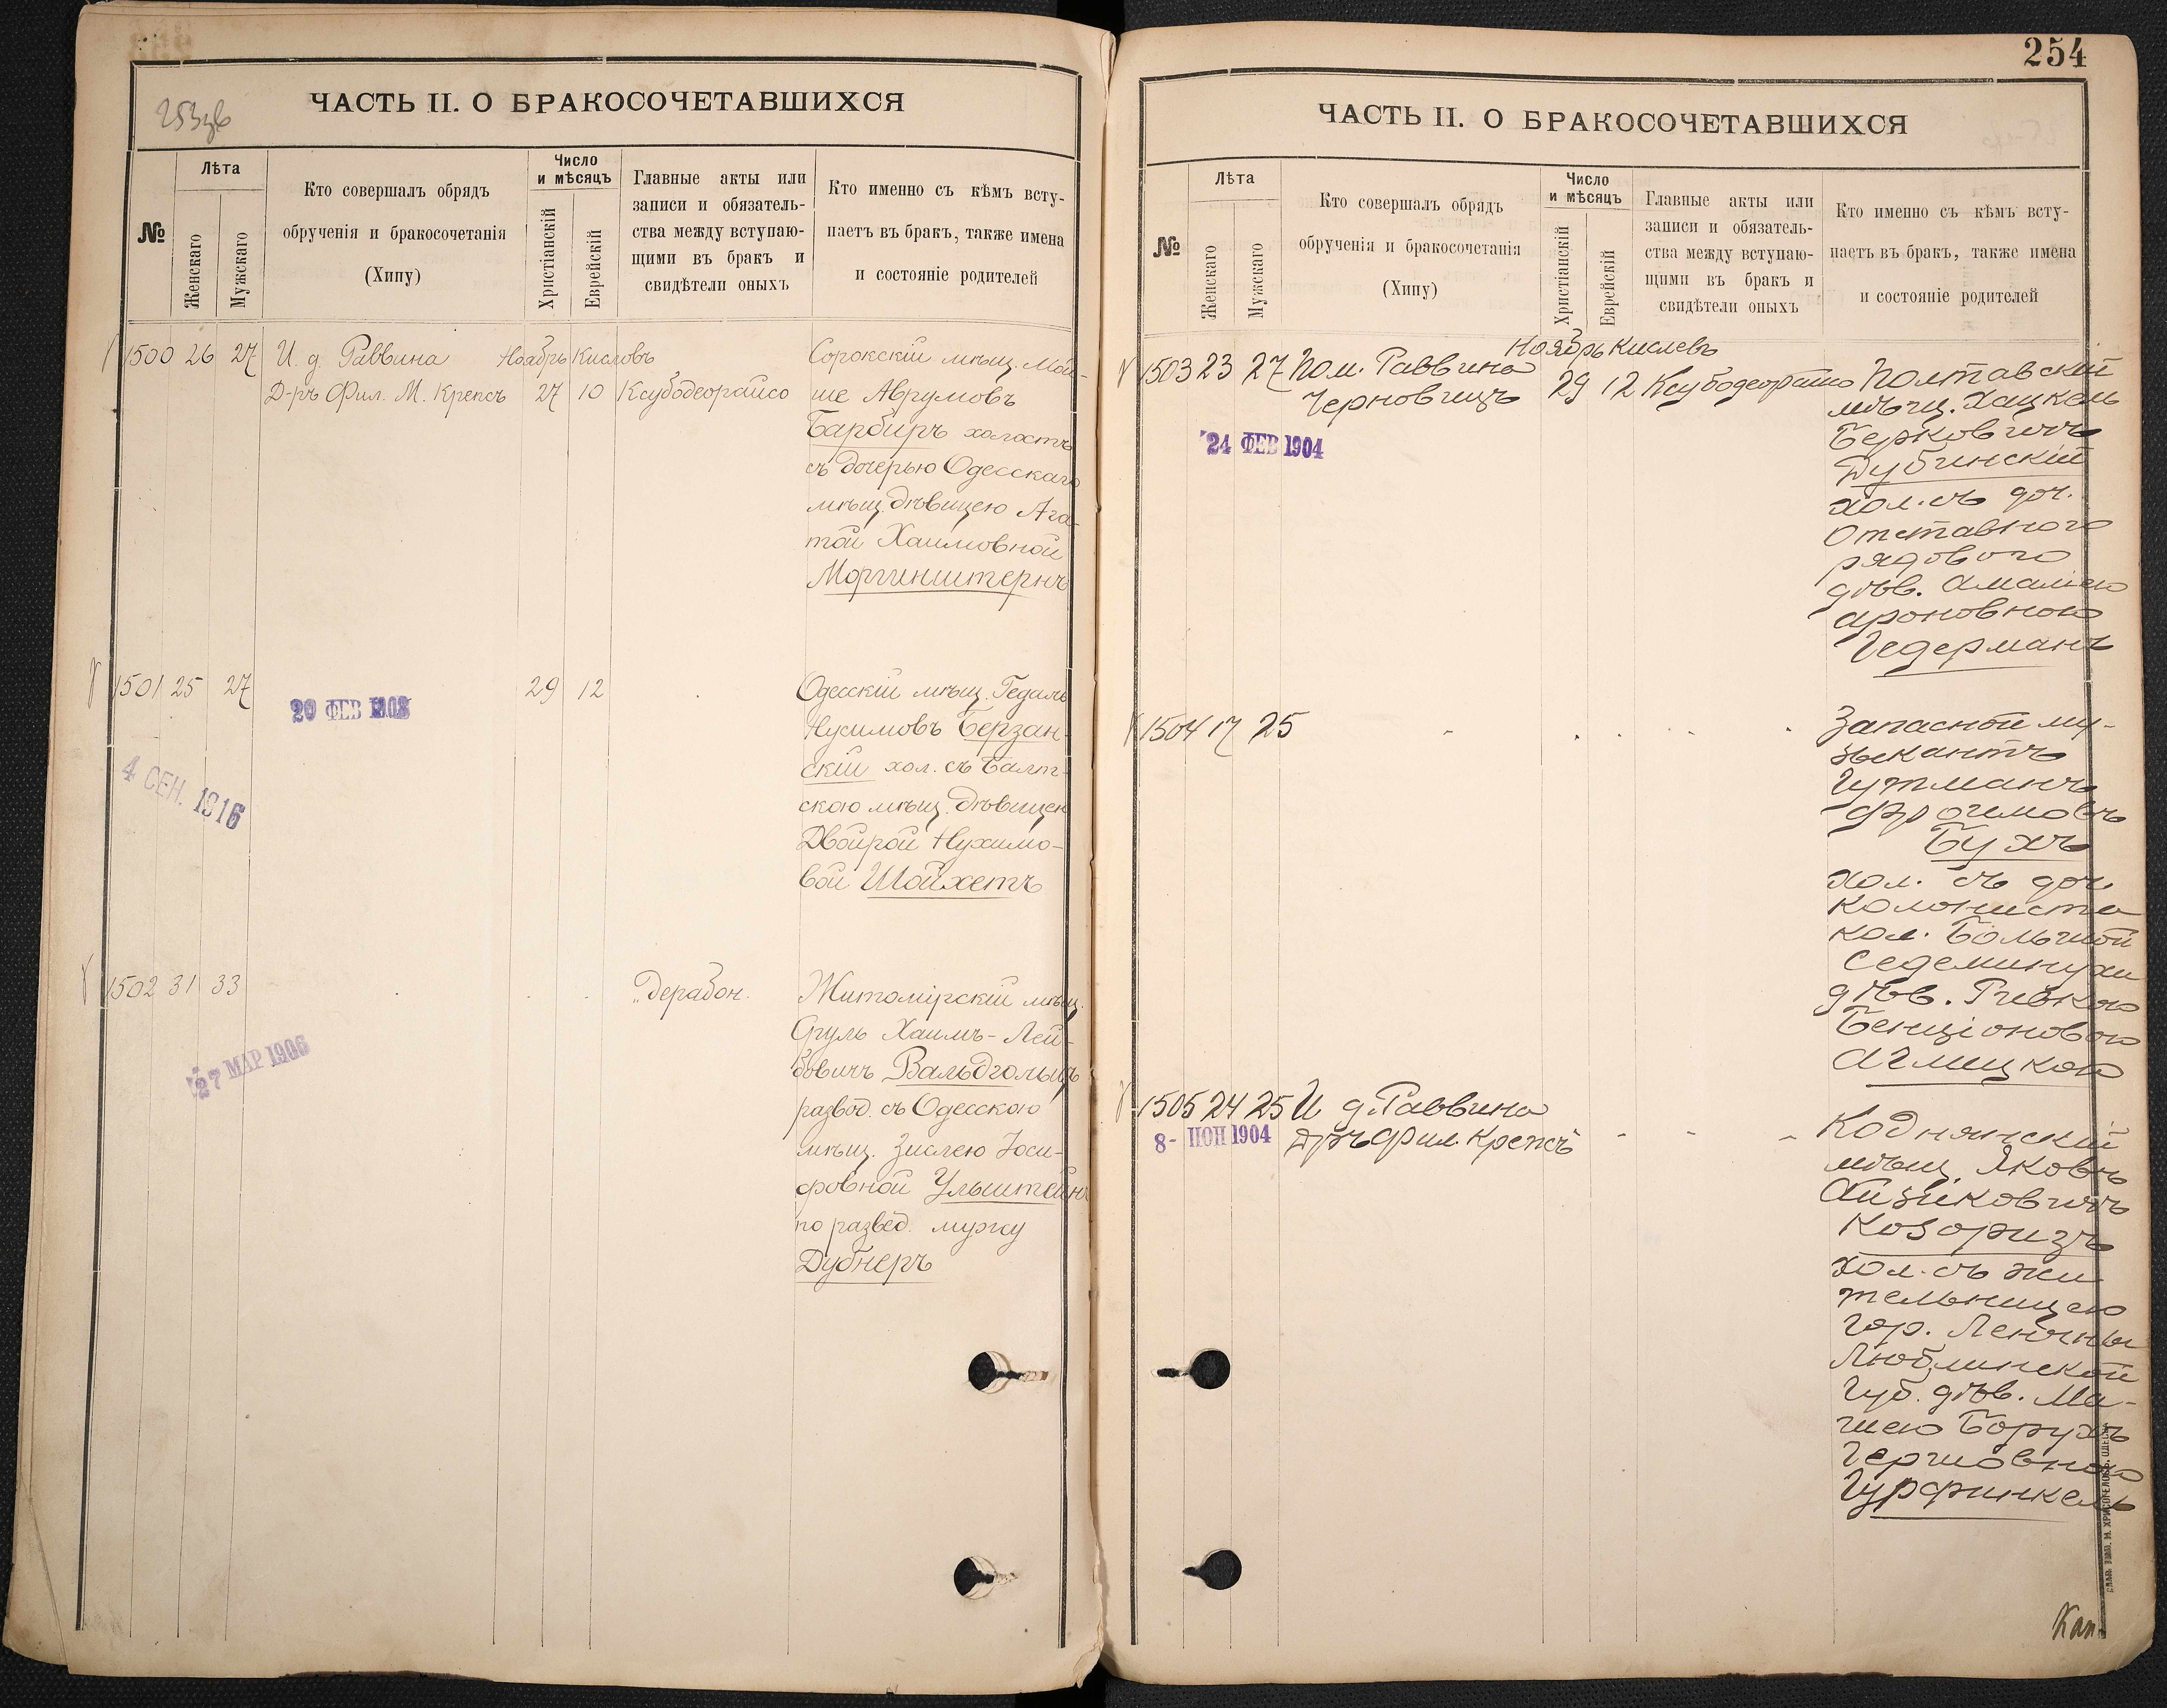 253об
ЧАСТЬ II. О БРАКОСОЧЕТАВШИХСЯ
№
Лѣта
Женскаго
Мужскаго
Кто совершалъ обрядъ
обрученія и бракосочетанія
(Хипу)
Число
и мѣсяцъ
Христіанскій
Еврейскій
Главные акты или
записи и обязатель-
ства между вступаю-
щими въ бракъ и
свидѣтели оныхъ
Кто именно съ кѣмъ всту-
паетъ въ бракъ, также имена
и состояніе родителей
1500 26 27 И. д. Раввина Ноябрь Кислевъ
Д-ръ Фил. М. Крепсъ 27 10 Ксубодеорайсо
Сорокскій мѣщ. Мой-
ше Аврумовъ
Барбиръ холостъ
съ дочерью Одесскаго
мѣщ. дѣвицею Ага-
той Хаимовной
Моргинштернъ
1501 25 27
29 12
20 ФЕВ
4 СЕН. 1916
Одесскій мѣщ. Гедаль
Нусимовъ Берзан-
скій хол. съ Балт-
скою мѣщ. дѣвицею
Двойрой Нухимо-
вой Шойхетъ
1502 31 33
„ дерабон.
27 МАР 1906
Житомірскій мѣщ.
Сруль Хаимъ-Лей-
бовичъ Вальдгольцъ
развод. съ Одесскою
мѣщ. Зислею Іоси-
фовной Ульштейнъ
по развед. мужу
Дубнеръ
254
ЧАСТЬ II. О БРАКОСОЧЕТАВШИХСЯ
№
Лѣта
Женскаго
Мужскаго
Кто совершалъ обрядъ
обрученія и бракосочетанія
(Хипу)
Число
и мѣсяцъ
Христіанскій
Еврейскій
Главные акты или
записи и обязатель-
ства между вступаю-
щими въ бракъ и
свидѣтели оныхъ
Кто именно съ кѣмъ всту-
паетъ въ бракъ, также имена
и состояніе родителей
Ноябрь Кислевъ
1503 23 27 Пом. Раввина
Черновицъ 29 12 Ксубодеорайсо
24 ФЕВ 1904
Полтавскій
мѣщ. Хацкель
Берковичъ
Дубинскій
хол. съ доч.
Отставного
рядового
дѣв. Амаліею
Ароновною
Гедерманъ
1504 17 25
Запасной му-
зыкантъ
Гутманъ
Фроимовъ
Бухъ
хол. съ доч.
колониста
кол. Большой
Седеминухи
дѣв. Ривкою
Бенціоновою
1505 24 25 И д. Раввина
8- ИЮН 1904 Д-ръ Фил. Крепсъ
Коднянскій
мѣщ Яковъ
Айзиковичъ
Козоризъ
хол. съ жи
тельницею
гор. Ленчны
Люблинской
Губ. дѣв. Ма-
шею Борухъ
Гершовною
Гурфинкель
Кан.